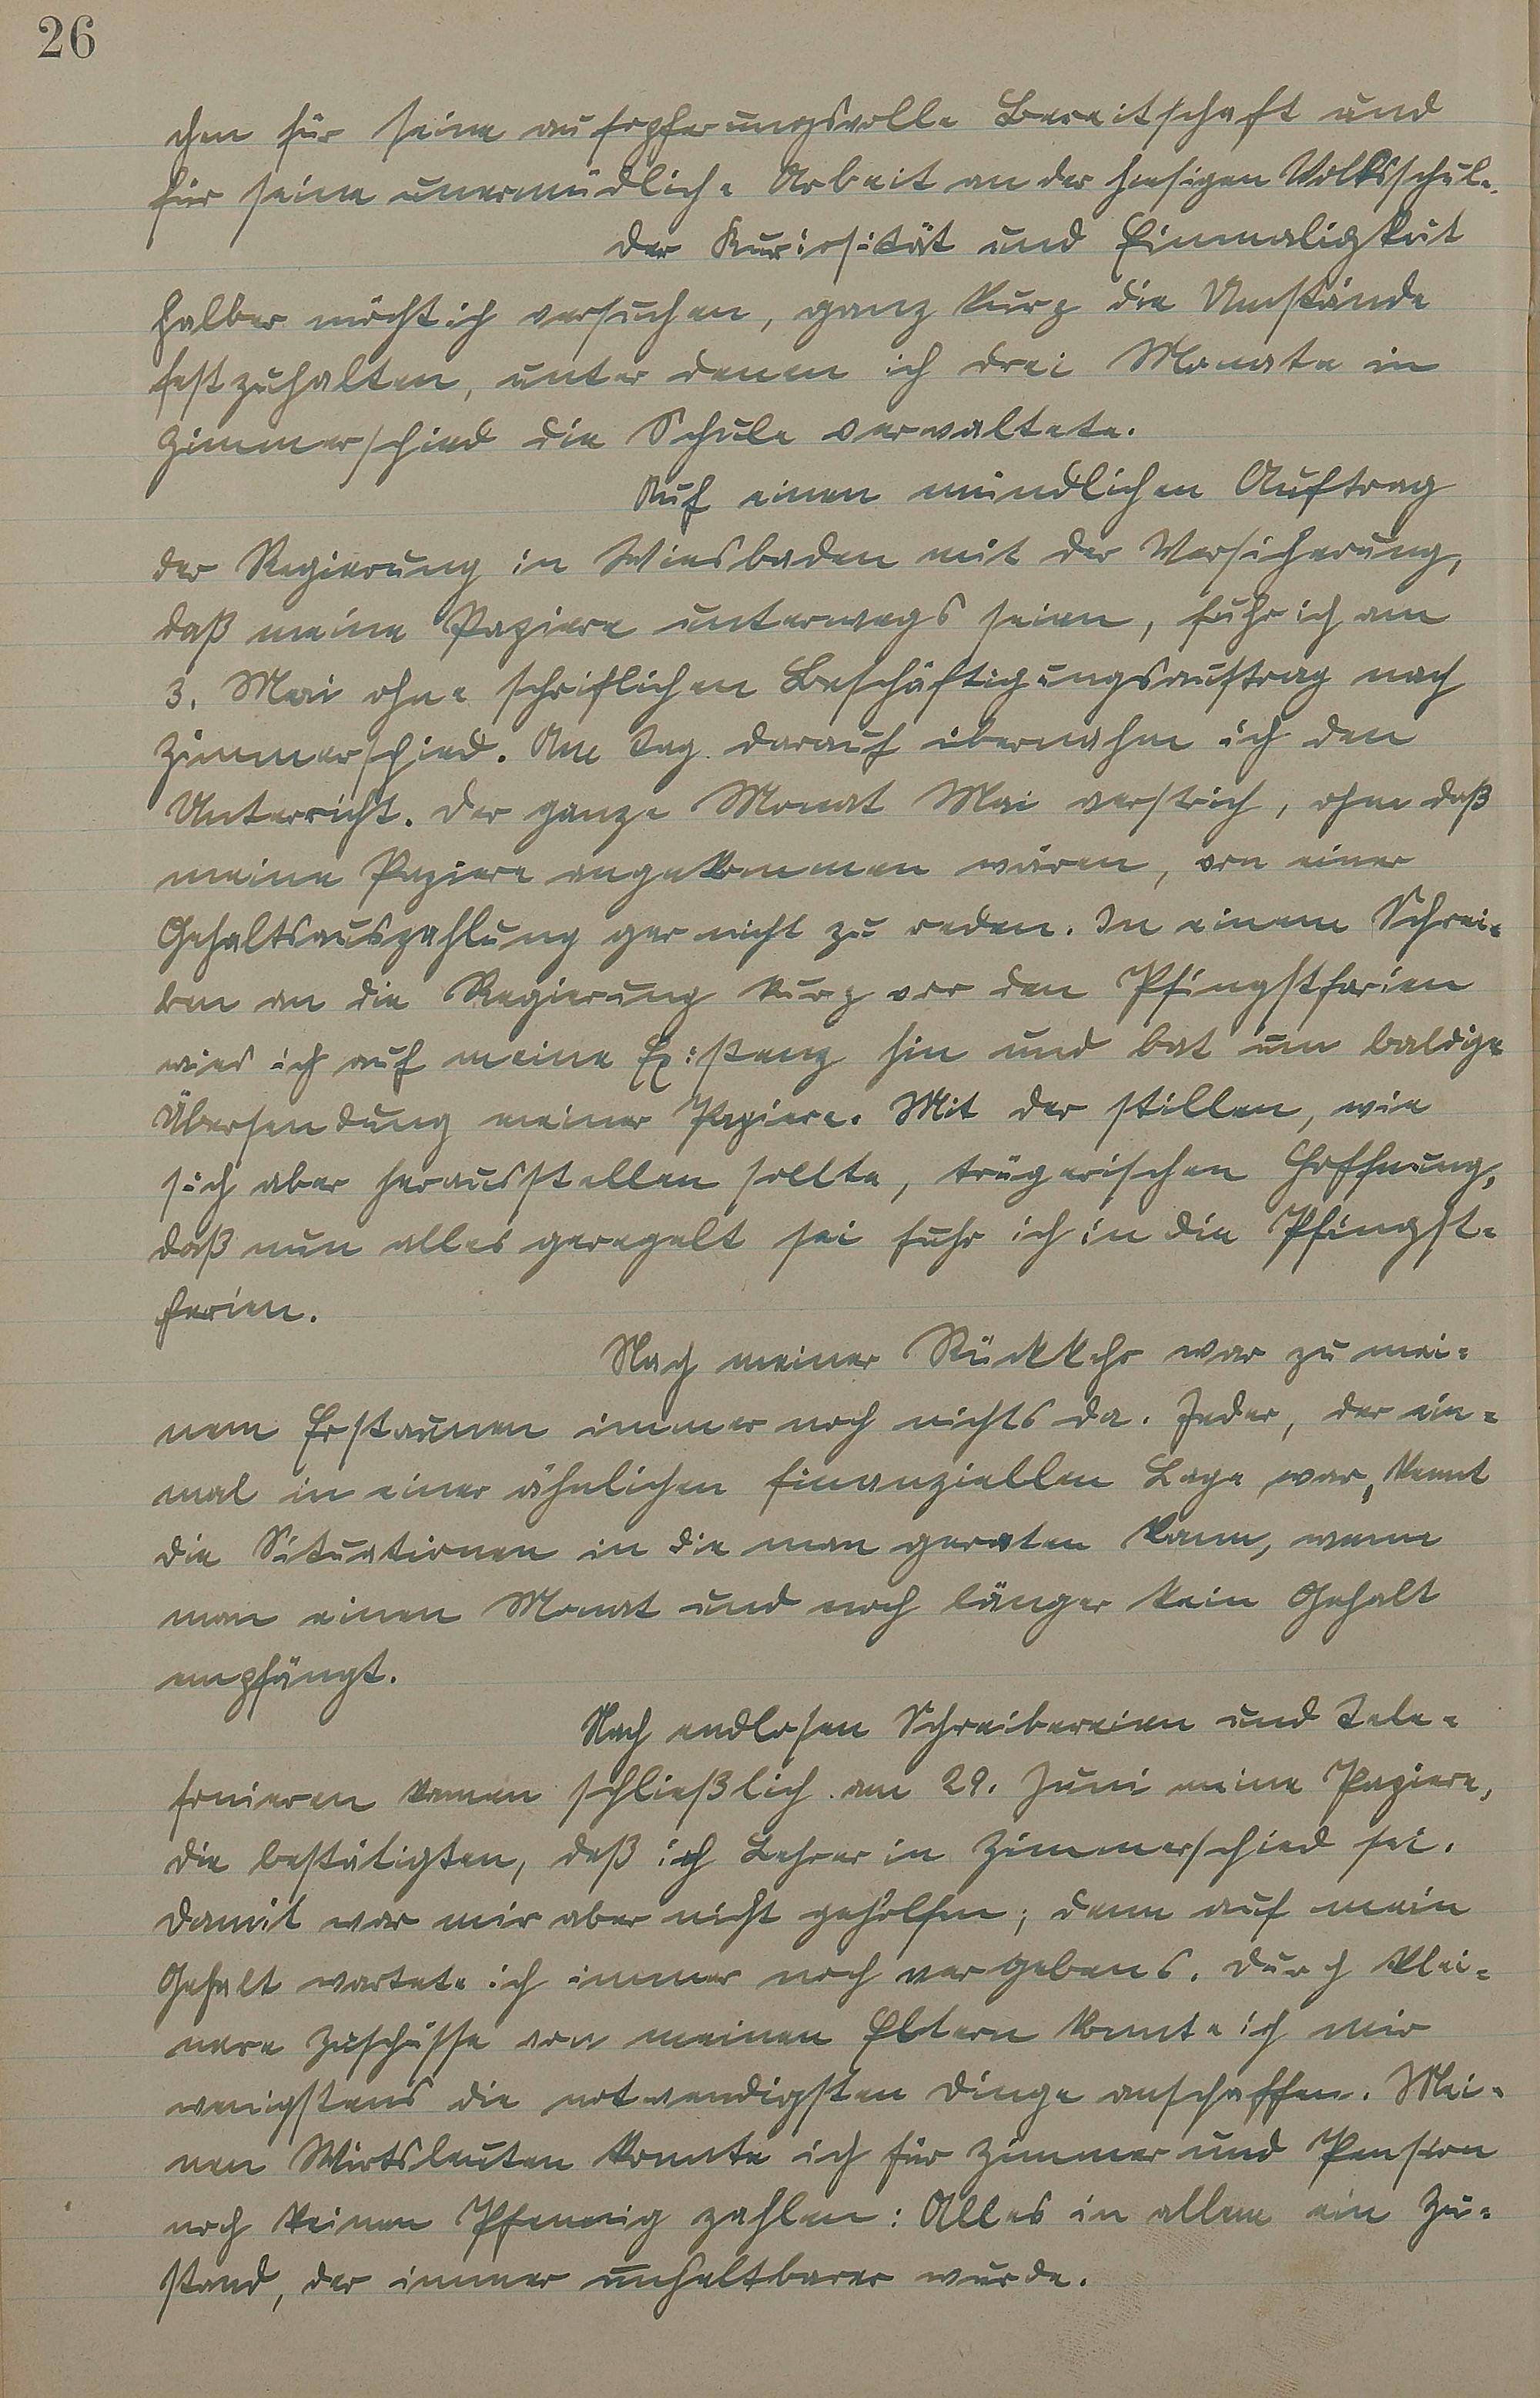 26
chen für seine aufopferungsvolle Bereitschaft und
für seine unermüdliche Arbeit an der hiesigen Volksschule.
Der Kuriosität und Einmaligkeit
halber möcht ich versuchen, ganz kurz die Umstände
festzuhalten, unter denen ich drei Monate in
Zimmerschied die Schule verwaltete.
Auf einen mündlichen Auftrag
der Regierung in Wiesbaden mit der Versicherung,
daß meine Papiere unterwegs seien, fuhr ich am
3. Mai ohne schriftlichen Beschäftigungsauftrag nach
Zimmerschied. Am Tag darauf übernahm ich den
Unterricht. Der ganze Monat Mai verstrich, ohne daß
meine Papiere angekommen wären, von einer
Gehaltsauszahlung gar nicht zu reden. In einem Schrei-
ben an die Regierung kurz vor den Pfingstferien
wies ich auf meine Existenz hin und bat um baldige
Übersendung meiner Papiere. Mit der stillen, wie
sich aber herausstellen sollte, trügerischen Hoffnung,
daß nun alles geregelt sei fuhr ich in die Pfingst-
ferien.
Nach meiner Rückkehr war zu mei-
nem Erstaunen immer noch nichts da. Jeder, der ein-
mal in einer ähnlichen finanziellen Lage war, kennt
die Situationen in die man geraten kann, wenn
man einen Monat und noch länger kein Gehalt
empfängt.
Nach endlosen Schreibereien und Tele-
fonieren kamen schließlich am 29. Juni meine Papiere,
die bestätigten, daß ich Lehrer in Zimmerschied sei.
Damit war mir aber nicht geholfen; denn auf mein
Gehalt wartete ich immer noch vergebens. Durch klei-
nere Zuschüsse von meinen Eltern konnte ich mir
wenigstens die notwendigsten Dinge anschaffen. Mei-
nen Wirtsleuten konnte ich für Zimmer und Pension
noch keinen Pfennig zahlen: Alles in allem ein Zu-
stand, der immer unhaltbarer wurde.